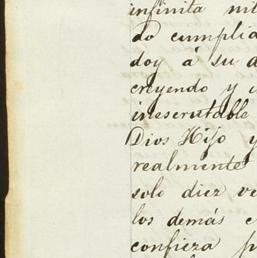 infinita mi
do cumplia
doy á su d
creyendo y c
inescrutable
Dios Hijo y
realmente
solo diez ve
los demás c
confieza p